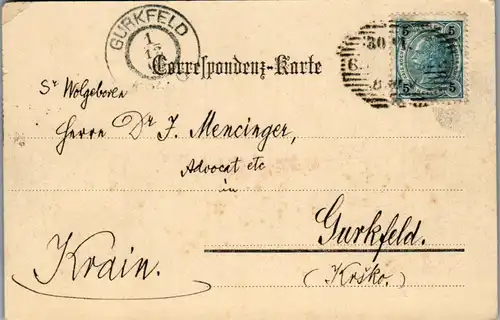 GURKFELD
1
12
Correspondenz-Karte
5 5
30 11
6
8
5 5
Sr Wolgeboren
Herrn Dr J. Mencinger,
Advocat etc
in
Gurkfeld.
Krain.
(Krško.)